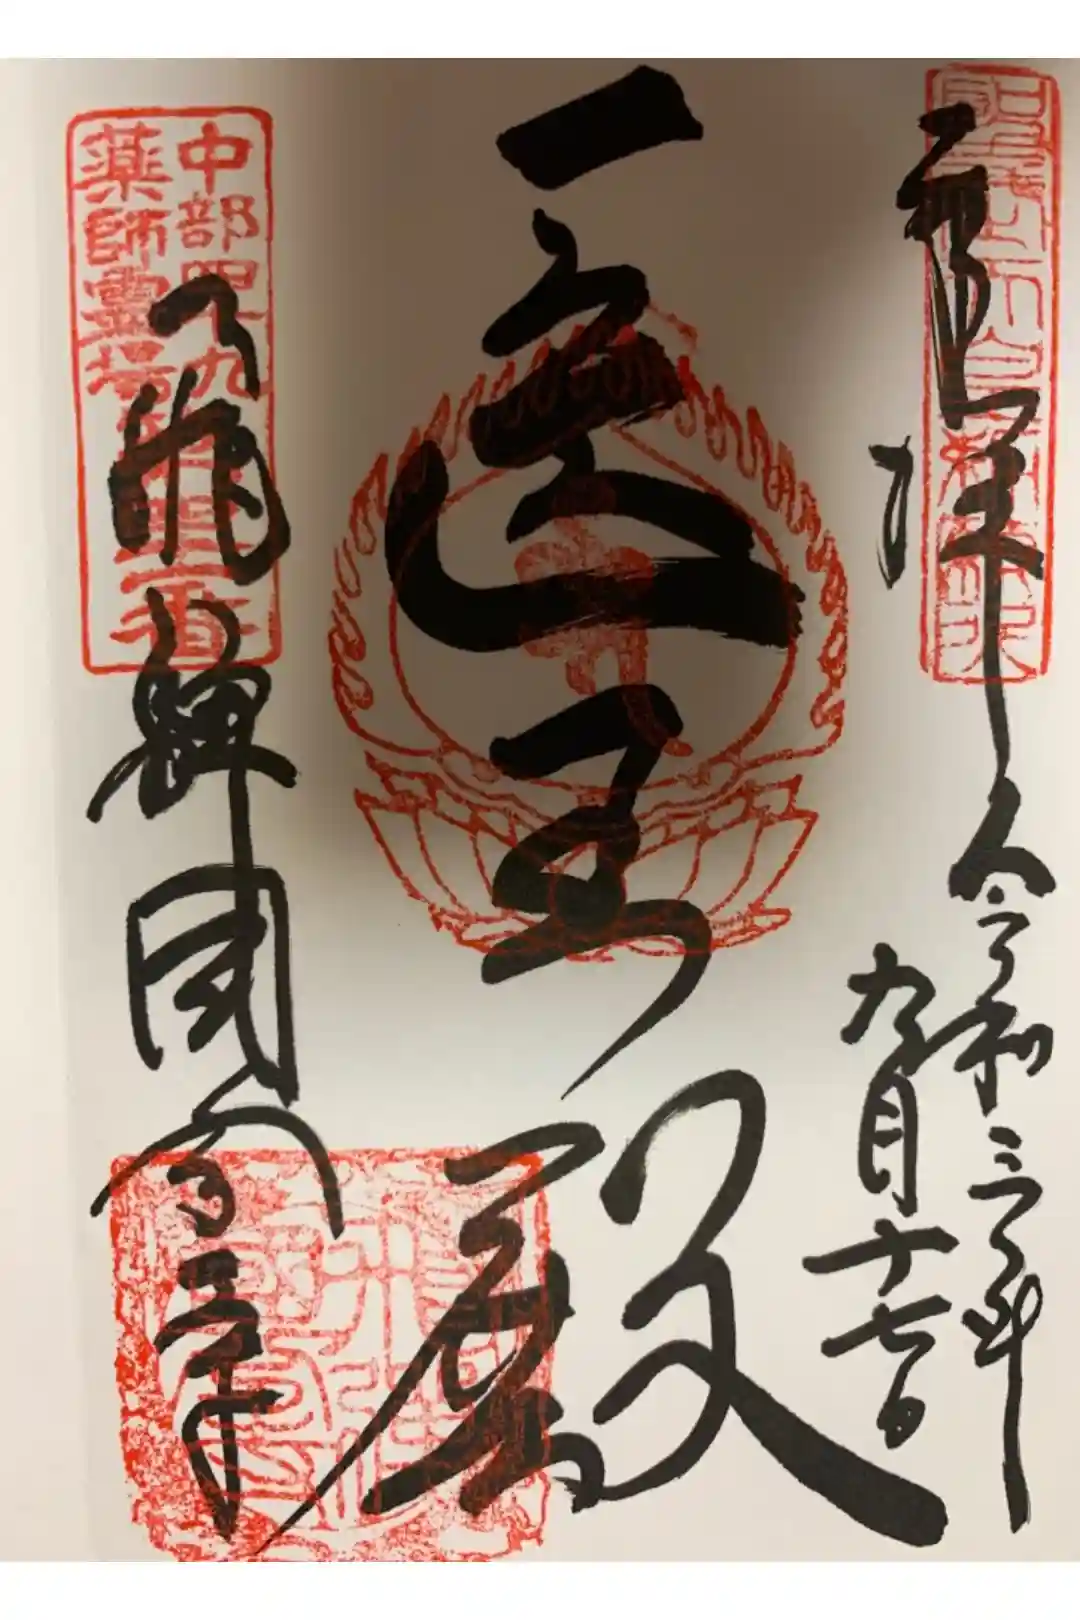 奉拝
令和三年
九月十七日
医王殿
飛騨国分寺
中部四十九
薬師霊場